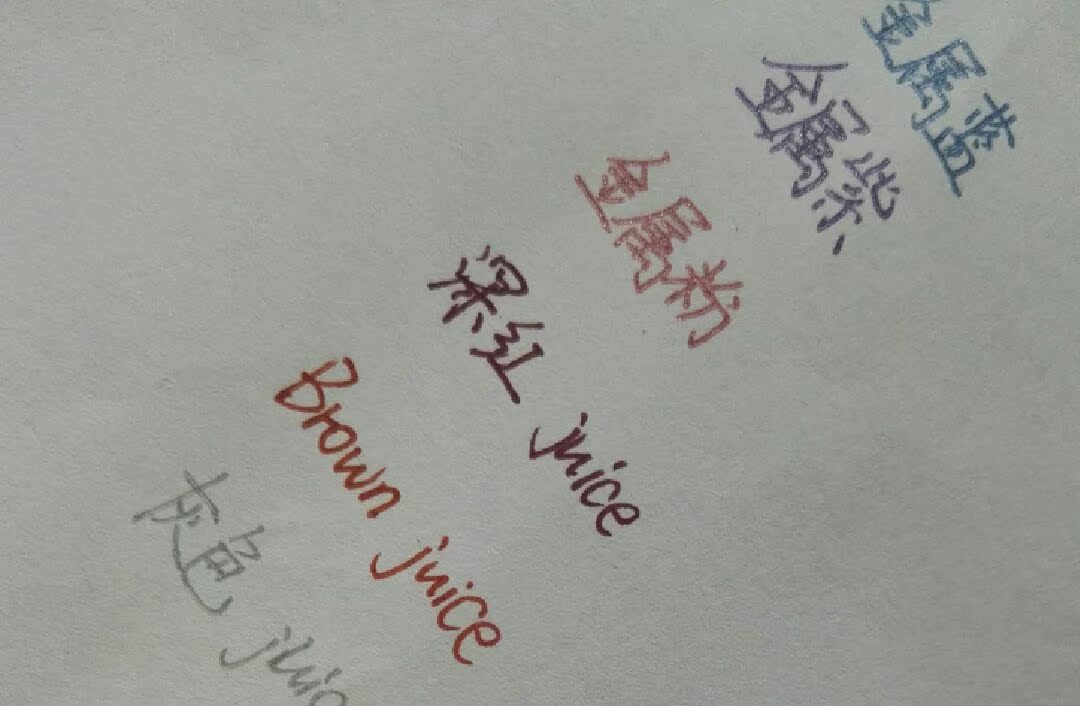 金属蓝
金属紫
金属粉
深红 juice
Brown juice
灰色 juic